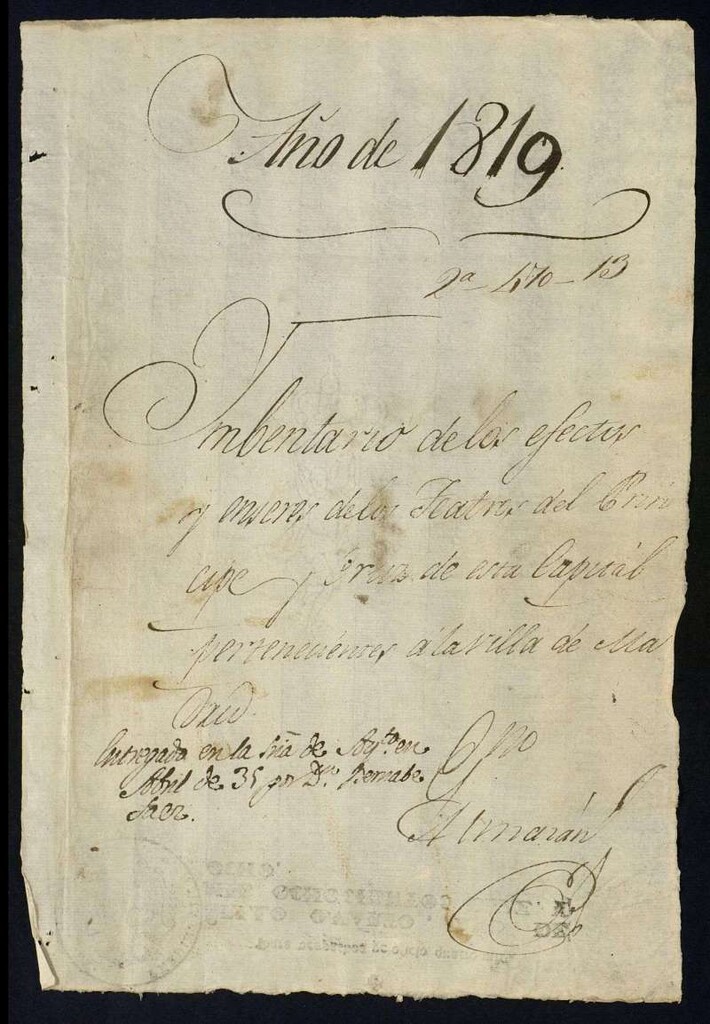 Año de 1819
2ª - 470 - 13
Inbentario de los efectos
y enseres de los Teatros del Prin
cipe y Cruz de esta Capital
pertenecientes a la villa de Ma
drid.
Entregado en la Sria de Aytº en
Abril de 35 por Dn Bernabe
Saez.